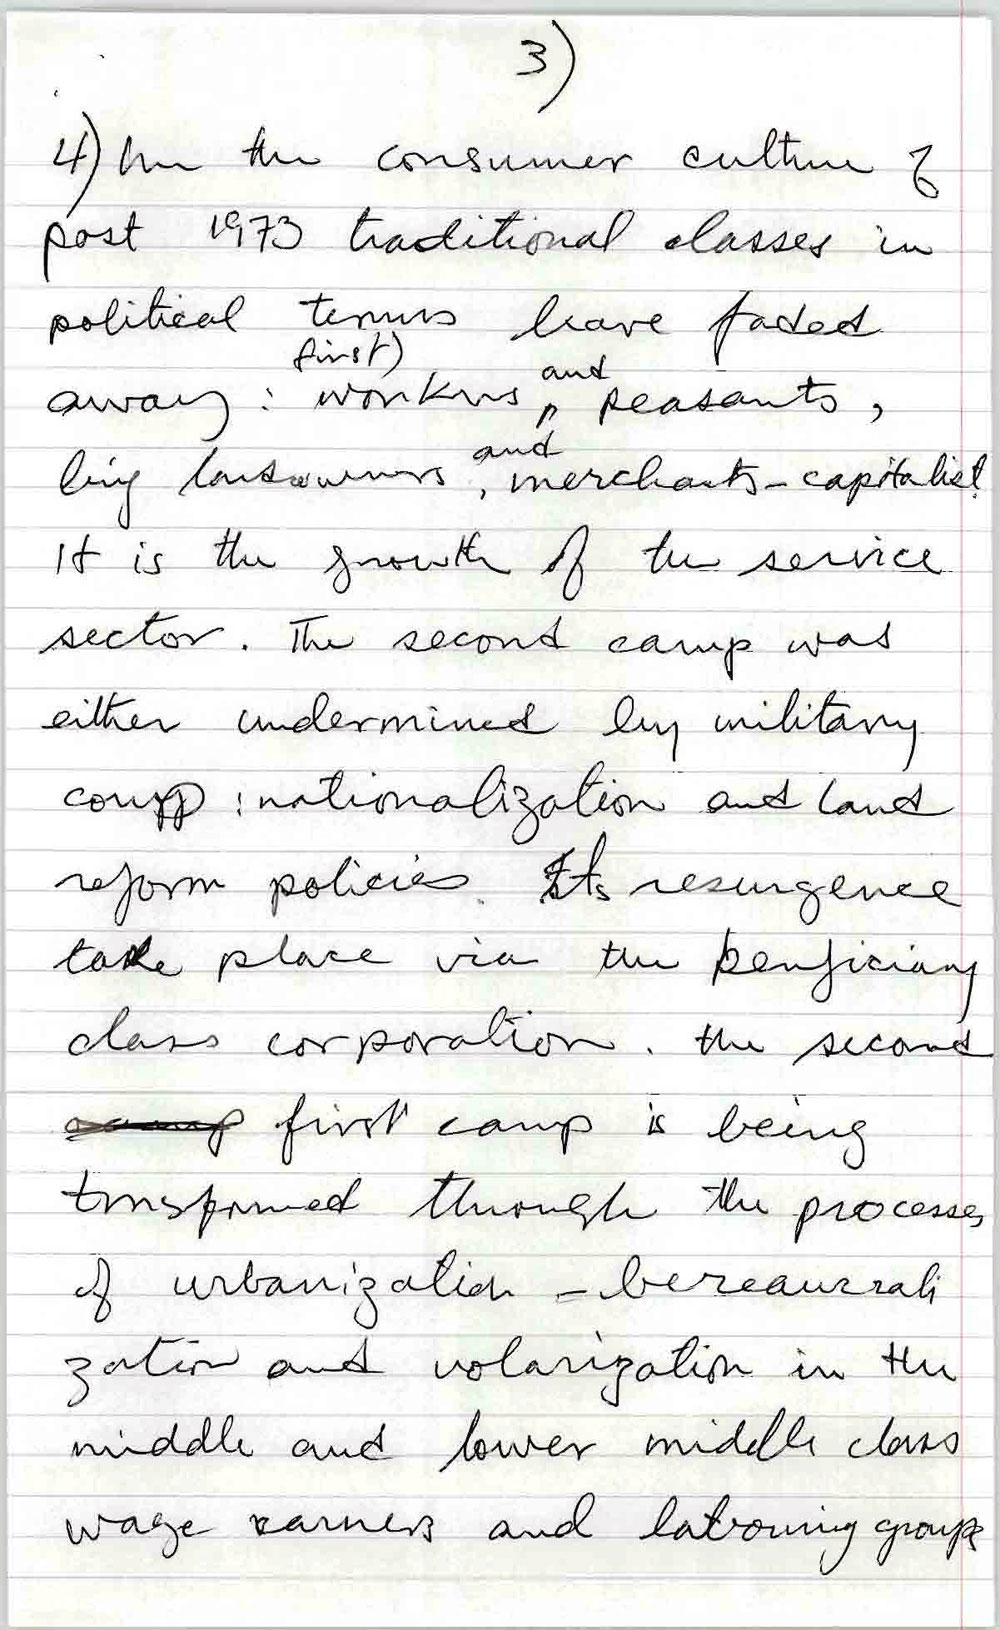 3)
4) In the consumer culture of
post 1973 traditional classes in
political terms have faded
first) and
away : workers, peasants,
big landowners, and merchants - capitalist.
It is the growth of the service
sector. The second camp was
either undermined by military
coup : nationalization and land
reform policies. Its resurgence
take place via the benficiary
class corporation. the second
camp first camp is being
trnsformed through the processes
of urbanization - bereaucrali
zation and volarization in the
middle and lower middle class
wage earners and labouring groups